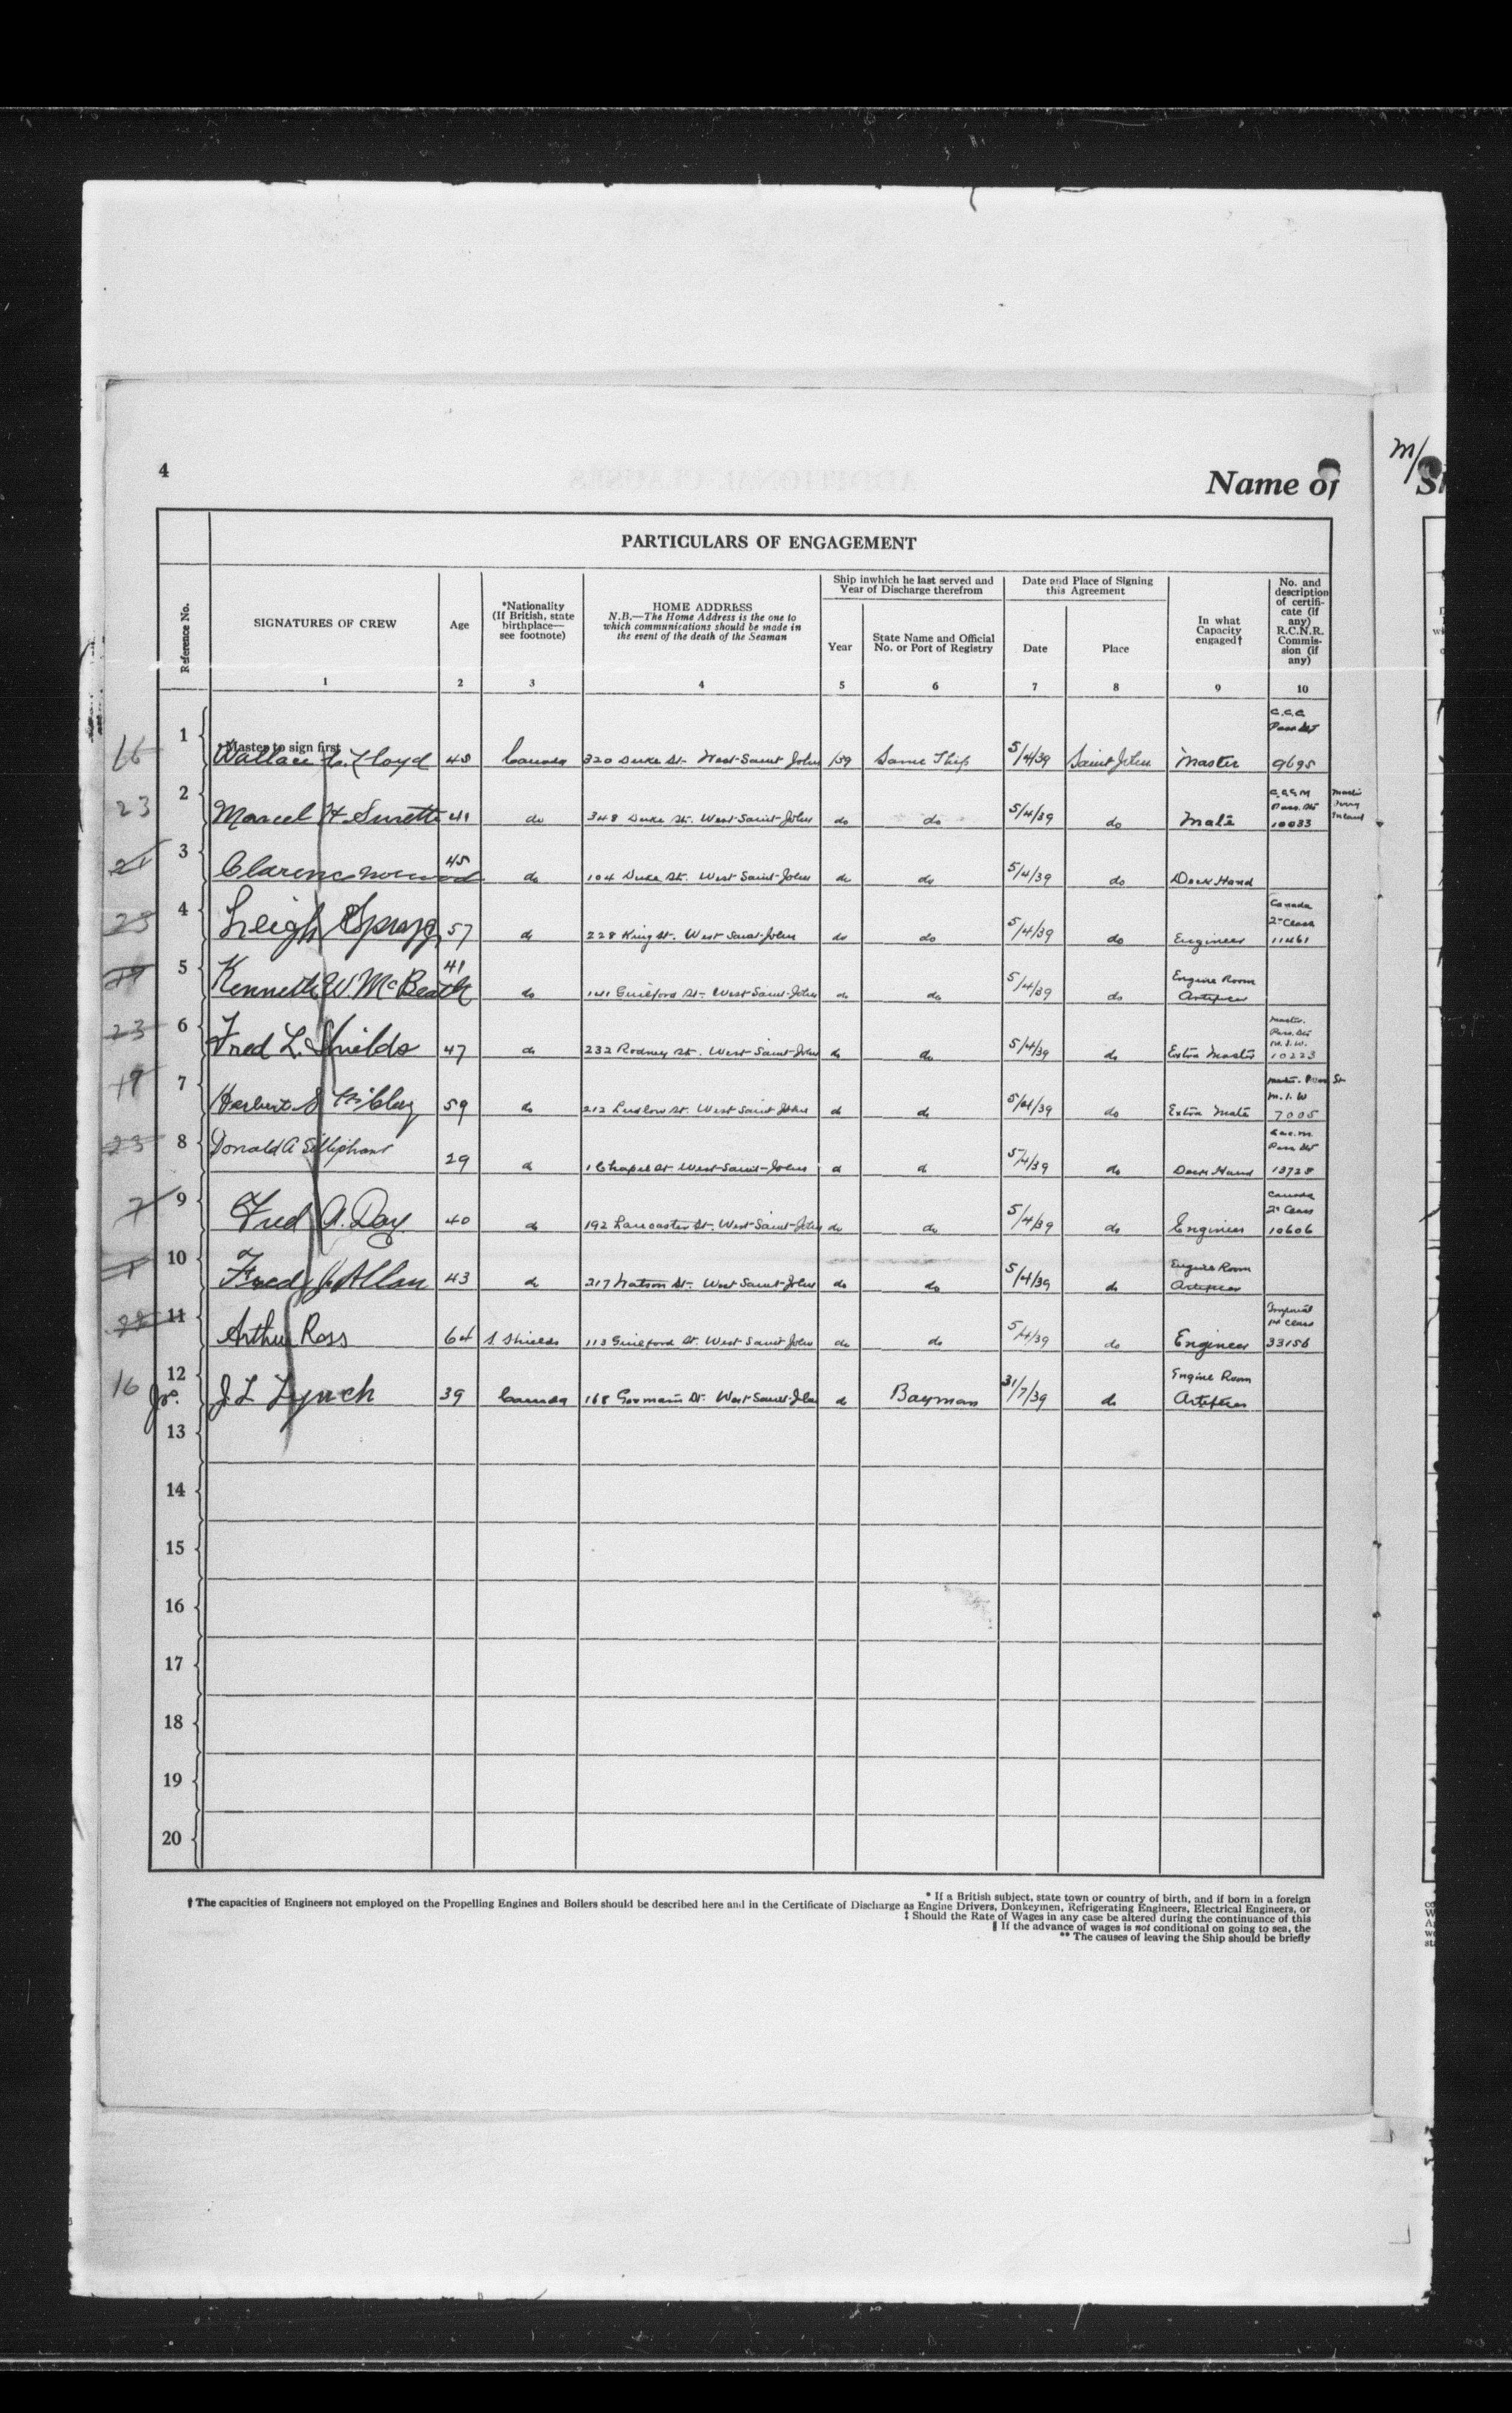 4
Name of
PARTICULARS OF ENGAGEMENT
Reference No.
SIGNATURES OF CREW
Age
*Nationality
(If British, state
birthplace—
see footnote)
HOME ADDRESS
N.B.—The Home Address is the one to
which communications should be made in
the event of the death of the Seaman
Ship inwhich he last served and
Year of Discharge therefrom
Year
State Name and Official
No. or Port of Registry
Date and Place of Signing
this Agreement
Date
Place
In what
Capacity
engaged†
No. and
description
of certifi-
cate (if
any)
R.C.N.R.
Commis-
sion (if
any)
1 2 3 4 5 6 7 8 9 10
Master to sign first
16 1 Wallace Lloyd 48 Canada 320 Duke St- West-Saint John 1/39 Same Ship 5/4/39 Saint John Master 9695
23 2 Marcel H Surette 41 do 348 Duke St. West-Saint-John do do 5/4/39 do Mate 10033
3 Clarence 45 do 104 Duke St. West-Saint-John do do 5/4/39 do Deck Hand
4 Leigh Spragg 57 do 228 King St. West Saint-John do do 5/4/39 do Engineer Canada 2nd Class 11461
5 Kenneth W. McBeath 41 do 141 Guilford St- West-Saint-John do do 5/4/39 do Engine Room Artificer
23 6 Fred L. Shields 47 do 232 Rodney St. West-Saint-John do do 5/4/39 do Extra Master Master. 10223
19 7 Herbert S 59 do 212 Ludlow St. West Saint John do do 5/4/39 do Extra Mate M.I.W 7005
23 8 Donald A Silliphant 29 do 1 Chapel St- West-Saint-John do do 5/4/39 do Deck Hand 13728
7 9 Fred A. Day 40 do 192 Lancaster St. West-Saint-John do do 5/4/39 do Engineer Canada 2nd Class 10606
10 Fred J Allan 43 do 217 Watson St- West Saint-John do do 5/4/39 do Engine Room Artificer
11 Arthur Ross 64 S. Shields 113 Guilford St. West Saint John do do 5/4/39 do Engineer Imperial 1st Class 33156
16 12 Jr. J L Lynch 39 Canada 168 Germain St- West-Saint-John do Bayman 31/7/39 do Engine Room Artificer
13
14
15
16
17
18
19
20
* If a British subject, state town or country of birth, and if born in a foreign
† The capacities of Engineers not employed on the Propelling Engines and Boilers should be described here and in the Certificate of Discharge as Engine Drivers, Donkeymen, Refrigerating Engineers, Electrical Engineers, or
‡ Should the Rate of Wages in any case be altered during the continuance of this
‖ If the advance of wages is not conditional on going to sea, the
** The causes of leaving the Ship should be briefly